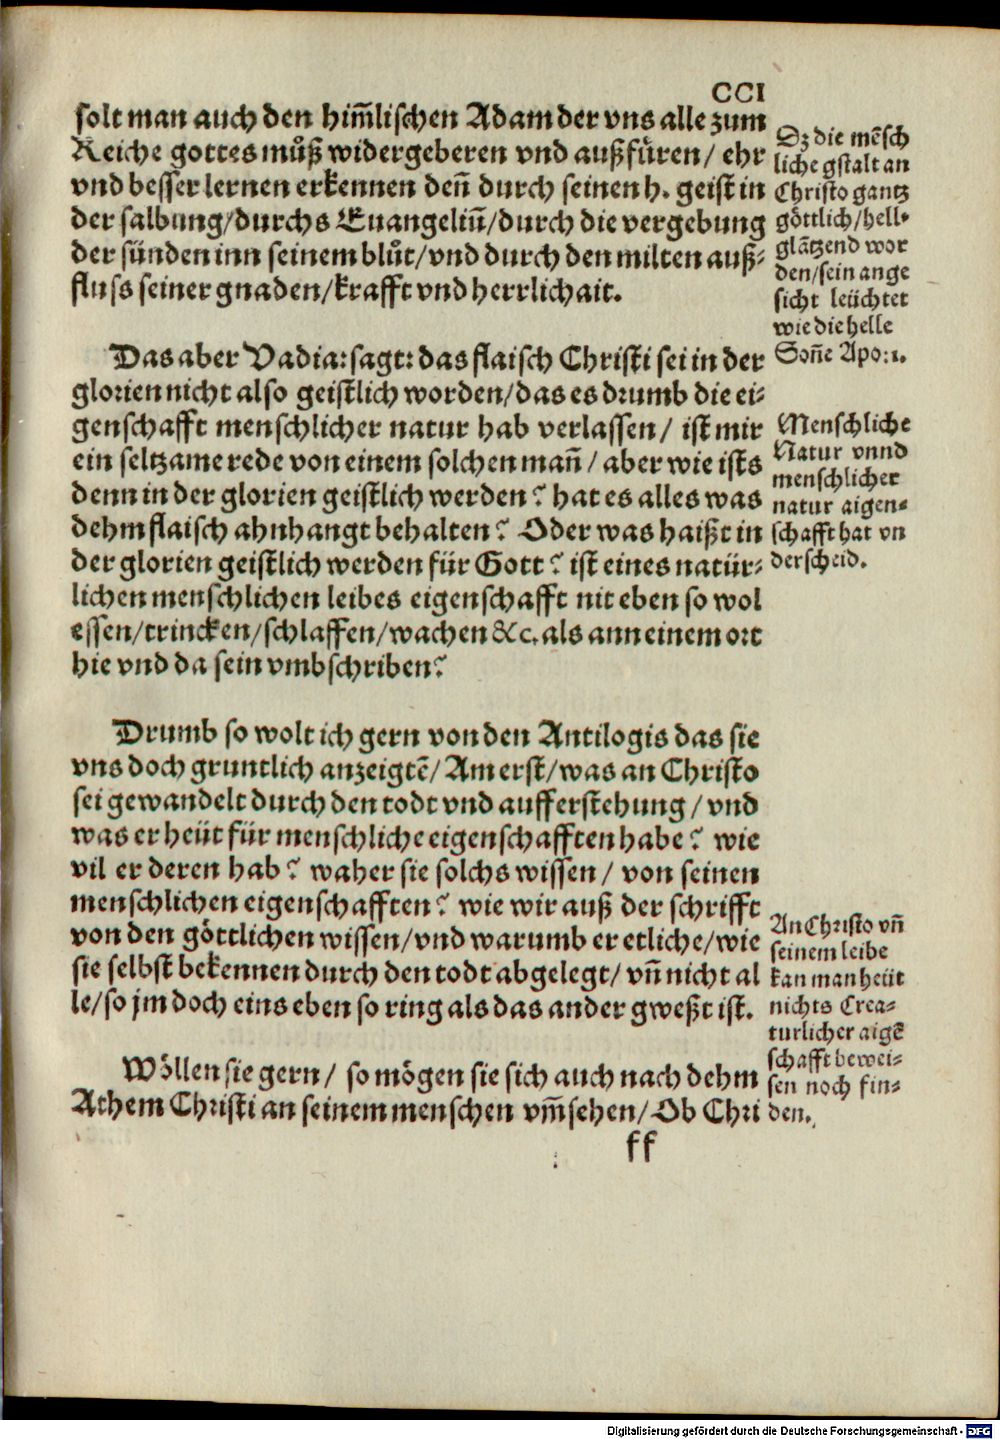 CCI
solt man auch den him̃lischen Adam der vns alle zum
Reiche gottes můß widergeberen vnd außfüren/ ehr
vnd besser lernen erkennen deñ durch seinen h. geist in
der salbung/durchs Euangeliũ/durch die vergebung
der sünden inn seinem blůt/vnd durch den milten auß-
fluss seiner gnaden/krafft vnd herrlichait.
Dz die mẽsch
liche gstalt an
Christo gantz
göttlich/hell-
glãtzend wor
den/sein ange
sicht leüchtet
wie die helle
Soñe Apo:1.
Das aber Vadia: sagt: das flaisch Christi sei in der
glorien nicht also geistlich worden/das es drumb die ei-
genschafft menschlicher natur hab verlassen/ ist mir
ein seltzame rede von einem solchen mañ/aber wie ists
denn in der glorien geistlich werden? hat es alles was
dehm flaisch ahnhangt behalten? Oder was haißt in
der glorien geistlich werden für Gott? ist eines natür-
lichen menschlichen leibes eigenschafft nit eben so wol
essen/trincken/schlaffen/wachen &c. als ann einem ort
hie vnd da sein vmbschriben?
Menschliche
Natur vnnd
menschlicher
natur aigen-
schafft hat vn
derscheid.
Drumb so wolt ich gern von den Antilogis das sie
vns doch gruntlich anzeigtẽ/Am erst/was an Christo
sei gewandelt durch den todt vnd aufferstehung/vnd
was er heüt für menschliche eigenschafften habe? wie
vil er deren hab? waher sie solchs wissen/ von seinen
menschlichen eigenschafften? wie wir auß der schrifft
von den göttlichen wissen/vnd warumb er etliche/wie
sie selbst bekennen durch den todt abgelegt/vñ nicht al
le/so jm doch eins eben so ring als das ander gweßt ist.
An Christo vñ
seinem leibe
kan man heüt
nichts Crea-
turlicher aigẽ
schafft bewei-
sen noch fin-
den.
Wöllen sie gern/ so mögen sie sich auch nach dehm
Athem Christi an seinem menschen vm̃sehen/Ob Chri
ff
Digitalisierung gefördert durch die Deutsche Forschungsgemeinschaft - DFG